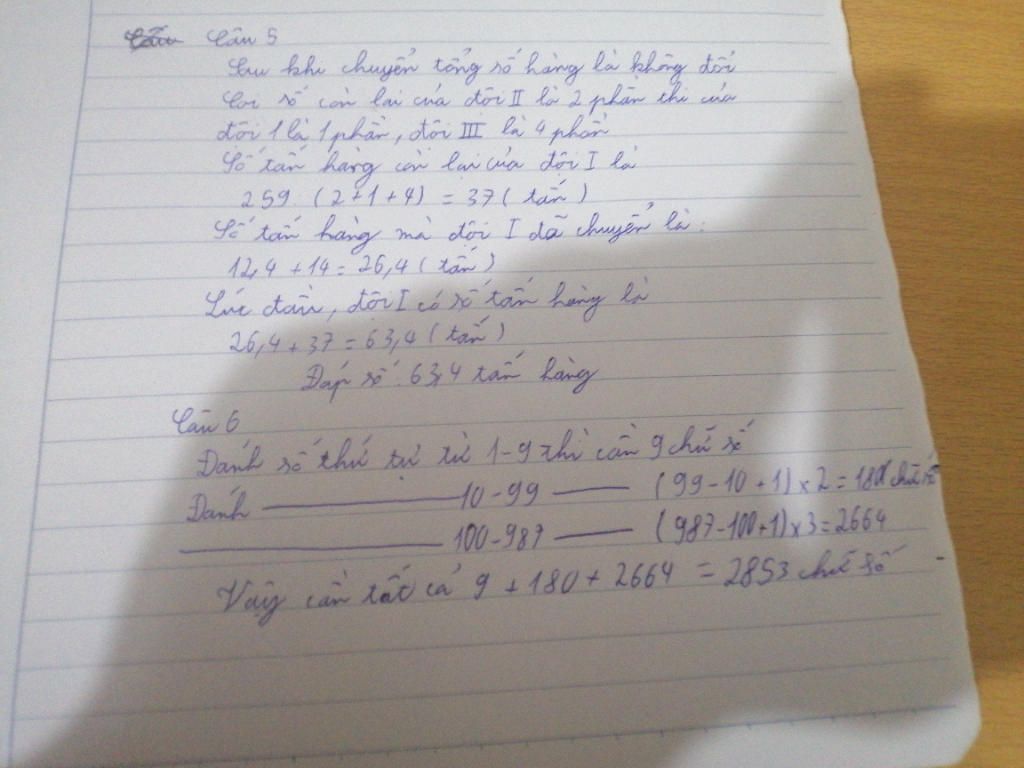 Câu 5
Sau khi chuyển tổng số hàng là không đổi
Coi số còn lại của đội II là 2 phần thì của
đội 1 là 1 phần, đội III là 4 phần
Số tấn hàng còn lại của đội I là
259 : (2+1+4) = 37 (tấn)
Số tấn hàng mà đội I đã chuyển là:
12,4 + 14 = 26,4 (tấn)
Lúc đầu, đội I có số tấn hàng là
26,4 + 37 = 63,4 (tấn)
Đáp số: 63,4 tấn hàng
Câu 6
Đánh số thứ tự từ 1-9 thì cần 9 chữ số
Đánh ——— 10-99 ——— (99-10+1)×2=180 chữ số
——— 100-987 ——— (987-100+1)×3=2664
Vậy cần tất cả 9 + 180 + 2664 = 2853 chữ số